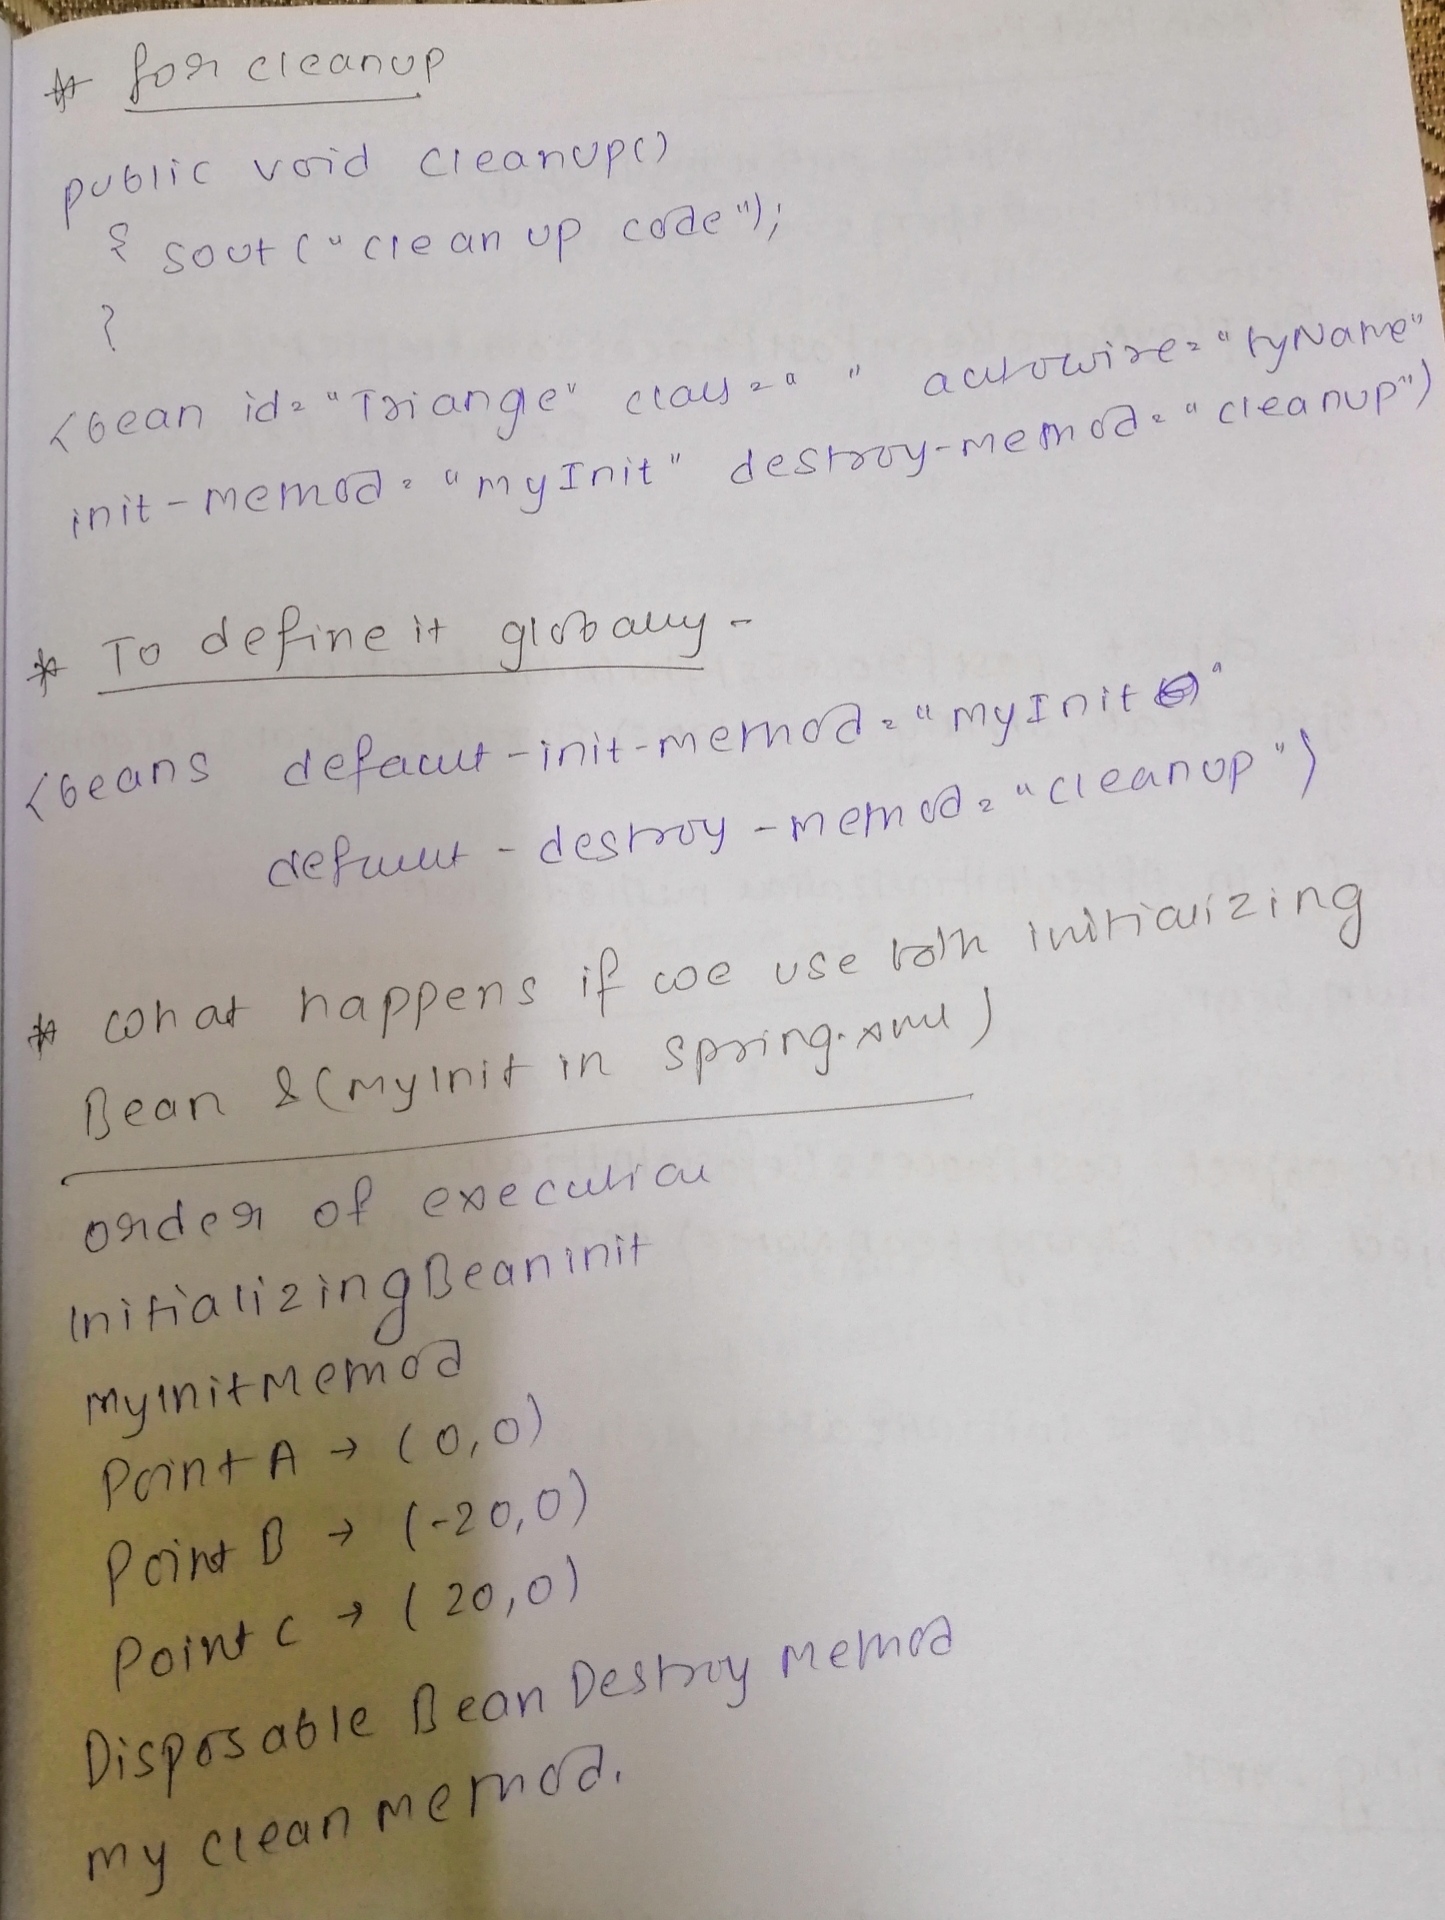 * for cleanup
public void cleanup()
{ sout ("clean up code");
}
<bean id="Triangle" class=" " autowire="byName"
init-method="myInit" destroy-method="cleanup">
* To define it globally -
<beans default-init-method="myInit"
default-destroy-method="cleanup">
* what happens if we use both initializing
Bean & (myInit in spring.xml)
order of execution
InitializingBean init
myInitMethod
Point A → (0,0)
Point B → (-20,0)
Point C → (20,0)
Disposable Bean Destroy Method
my clean method.